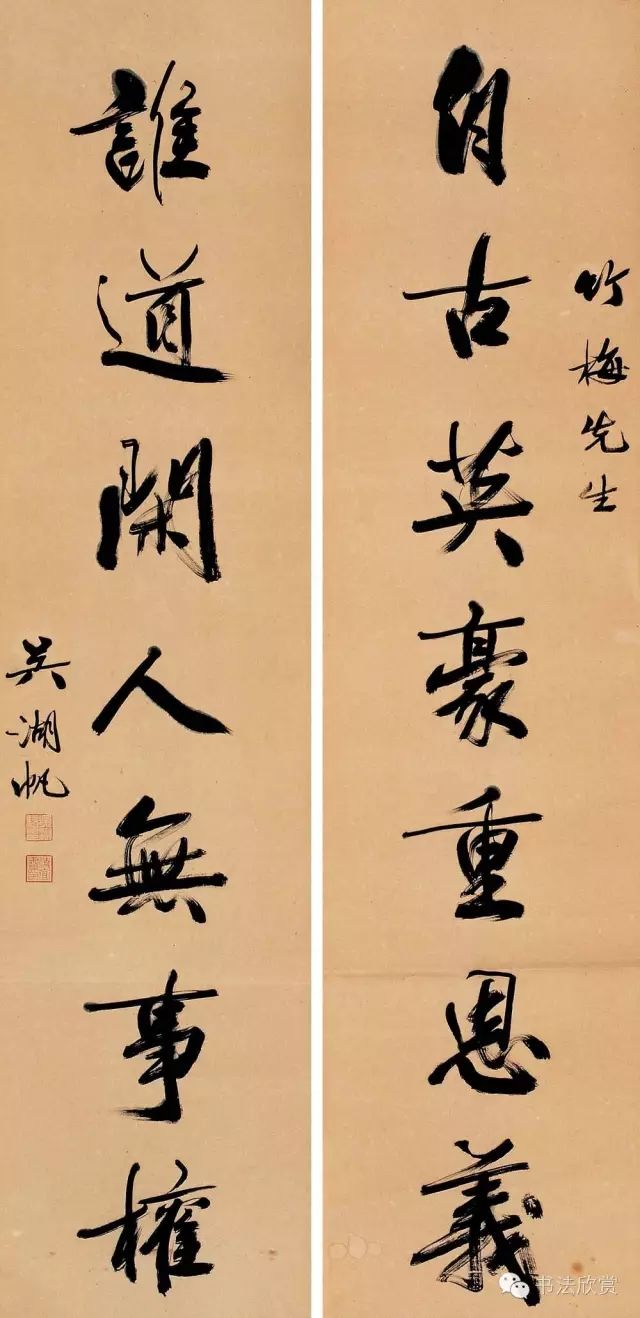 竹梅先生
自古英豪重恩義
誰道閑人無事權
吴湖帆
书法欣赏